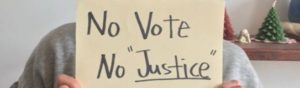 No Vote
No "Justice"